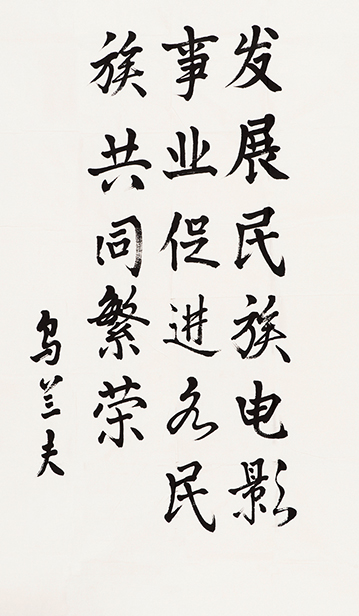 发展民族电影
事业促进各民
族共同繁荣
乌兰夫